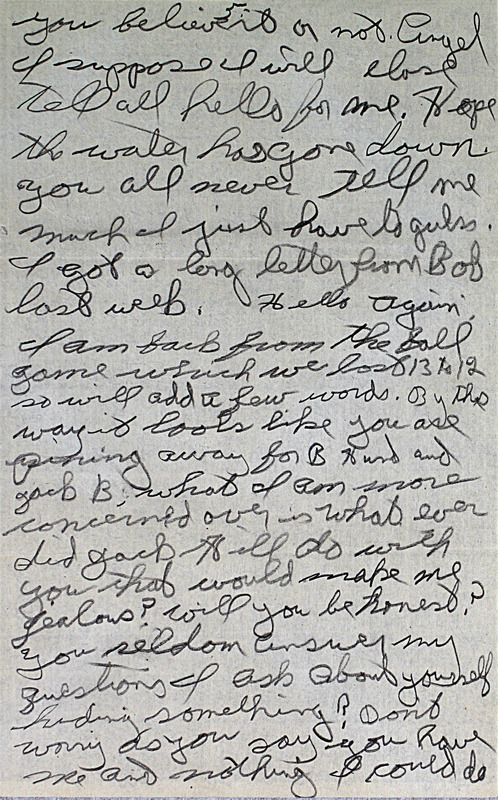 you believe it or not. Angel
I suppose I will close
Tell all hello for me. Hope
the water has gone down.
you all never tell me
much I just have to guess.
I got a long letter from Bob
last week. Hello again,
I am back from the ball
game which we lost 13 to 12
so will add a few words. By the
way it looks like you are
pining away for B Hurd and
Jack B, what I am more
concerned over is what ever
did Jack Hill do with
you that would make me
jealous? Will you be honest?
you seldom answer my
questions I ask about yourself
hiding something? Dont
worry as you say you have
me and nothing I could do